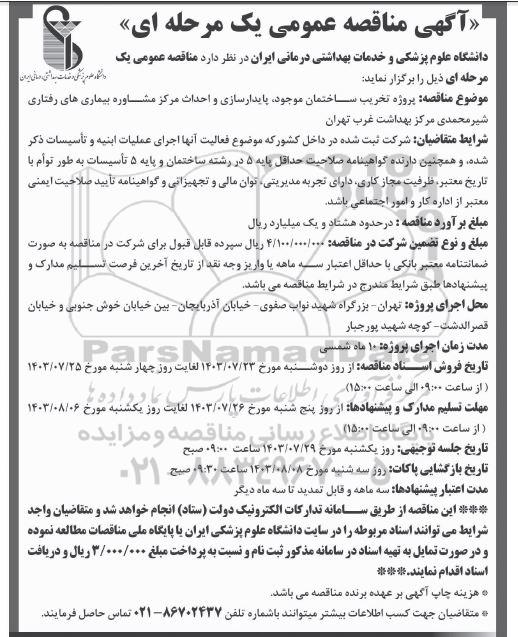 «آگهی مناقصه عمومی یک مرحله ای»
دانشگاه علوم پزشکی و خدمات بهداشتی درمانی ایران
دانشگاه علوم پزشکی و خدمات بهداشتی درمانی ایران در نظر دارد مناقصه عمومی یک
مرحله ای ذیل را برگزار نماید:
موضوع مناقصه: پروژه تخریب ساختمان موجود، پایدارسازی و احداث مرکز مشاوره بیماری های رفتاری
شیرمحمدی مرکز بهداشت غرب تهران
شرایط متقاضیان: شرکت ثبت شده در داخل کشور که موضوع فعالیت آنها اجرای عملیات ابنیه و تأسیسات ذکر
شده، و همچنین دارنده گواهینامه صلاحیت حداقل پایه ۵ در رشته ساختمان و پایه ۵ تأسیسات به طور توأم با
تاریخ معتبر، ظرفیت مجاز کاری، دارای تجربه مدیریتی، توان مالی و تجهیزاتی و گواهینامه تأیید صلاحیت ایمنی
معتبر از اداره کار و امور اجتماعی باشد.
مبلغ برآورد مناقصه : درحدود هشتاد و یک میلیارد ریال
مبلغ و نوع تضمین شرکت در مناقصه: ۴/۱۰۰/۰۰۰/۰۰۰ ریال سپرده قابل قبول برای شرکت در مناقصه به صورت
ضمانتنامه معتبر بانکی با حداقل اعتبار سه ماهه یا واریز وجه نقد از تاریخ آخرین فرصت تسلیم مدارک و
پیشنهادها طبق شرایط مندرج در شرایط مناقصه می باشد.
محل اجرای پروژه: تهران- بزرگراه شهید نواب صفوی- خیابان آذربایجان- بین خیابان خوش جنوبی و خیابان
قصرالدشت- کوچه شهید پورجبار
مدت زمان اجرای پروژه: ۱۰ ماه شمسی
تاریخ فروش اسناد مناقصه: از روز دوشنبه مورخ ۱۴۰۳/۰۷/۲۳ لغایت روز چهار شنبه مورخ ۱۴۰۳/۰۷/۲۵
( از ساعت ۰۹:۰۰ الی ساعت ۱۵:۰۰)
مهلت تسلیم مدارک و پیشنهادها: از روز پنج شنبه مورخ ۱۴۰۳/۰۷/۲۶ لغایت روز یکشنبه مورخ ۱۴۰۳/۰۸/۰۶
( از ساعت ۰۹:۰۰ الی ساعت ۱۵:۰۰)
تاریخ جلسه توجیهی: روز یکشنبه مورخ ۱۴۰۳/۰۷/۲۹ ساعت ۰۹:۰۰ صبح
تاریخ بازگشایی پاکات: روز سه شنبه مورخ ۱۴۰۳/۰۸/۰۸ ساعت ۰۹:۳۰ صبح
مدت اعتبار پیشنهادها: سه ماهه و قابل تمدید تا سه ماه دیگر
*** این مناقصه از طریق سامانه تدارکات الکترونیک دولت (ستاد) انجام خواهد شد و متقاضیان واجد
شرایط می توانند اسناد مربوطه را در سایت دانشگاه علوم پزشکی ایران یا پایگاه ملی مناقصات مطالعه نموده
و در صورت تمایل به تهیه اسناد در سامانه مذکور ثبت نام و نسبت به پرداخت مبلغ ۳/۰۰۰/۰۰۰ ریال و دریافت
اسناد اقدام نمایند.***
* هزینه چاپ آگهی بر عهده برنده مناقصه می باشد.
* متقاضیان جهت کسب اطلاعات بیشتر میتوانند باشماره تلفن ۸۶۷۰۲۴۳۷-۰۲۱ تماس حاصل فرمایند.